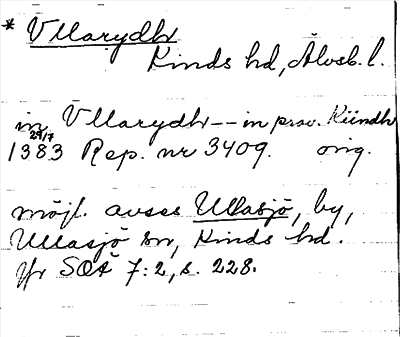 * Vllarydh
Kinds hd, Älvsb. l.
in Vllarydh -- in prov. Kiindh
29/7
1383 Rep. nr 3409. orig.
möjl. avses Ullasjö, by,
Ullasjö sn, Kinds hd.
Jfr SOÄ 7:2, s. 228.